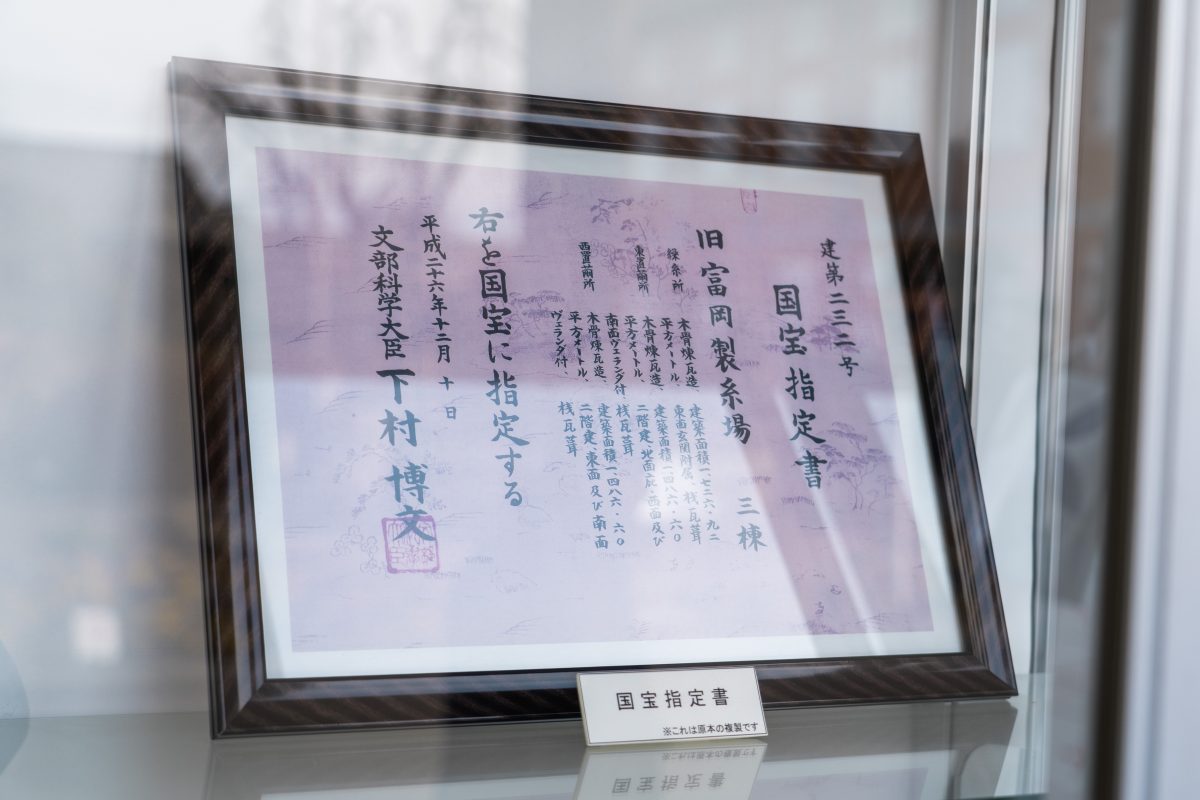 建第二三二号
国宝指定書
旧富岡製糸場 三棟
繰糸所 木骨煉瓦造、建築面積一、七二六・九二
平方メートル、東面玄関附属、桟瓦葺
東置繭所 木骨煉瓦造、建築面積一、四八六・六〇
平方メートル、二階建、北面庇・西面及び
南面ヴェランダ付、桟瓦葺
西置繭所 木骨煉瓦造、建築面積一、四八六・六〇
平方メートル、二階建、東面及び南面
ヴェランダ付、桟瓦葺
右を国宝に指定する
平成二十六年十二月十日
文部科学大臣 下村博文
国宝指定書
※これは原本の複製です